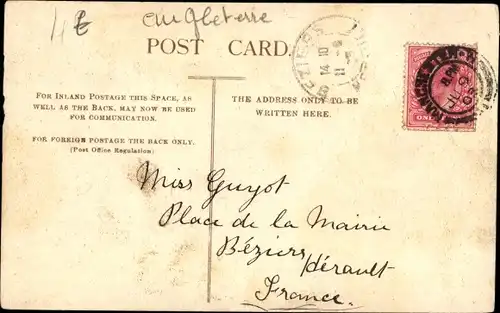 4£
Angleterre
POST CARD.
FOR INLAND POSTAGE THIS SPACE, AS
WELL AS THE BACK, MAY NOW BE USED
FOR COMMUNICATION.
FOR FOREIGN POSTAGE THE BACK ONLY.
(Post Office Regulation)
THE ADDRESS ONLY TO BE
WRITTEN HERE.
Miss Guyot
Place de la Mairie
Béziers
Hérault
France.